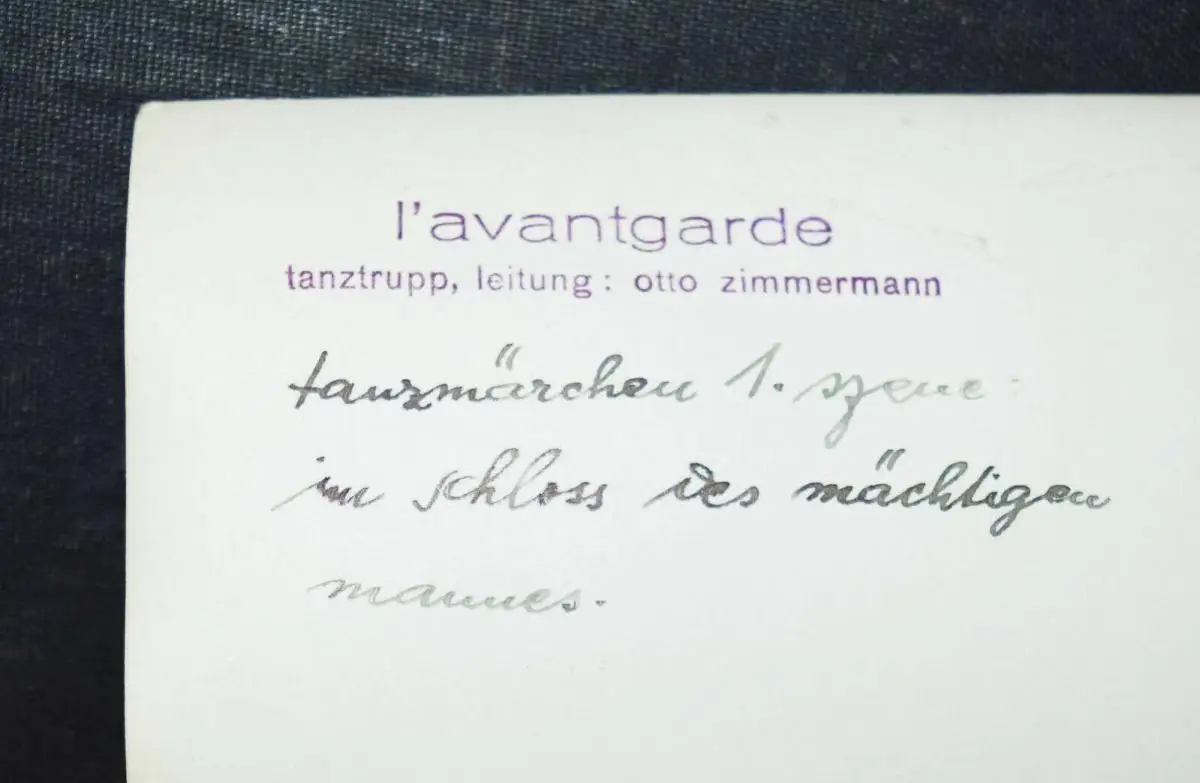 l'avantgarde
tanztrupp, leitung: otto zimmermann
tanzmärchen 1. szene:
im schloss des mächtigen
mannes.